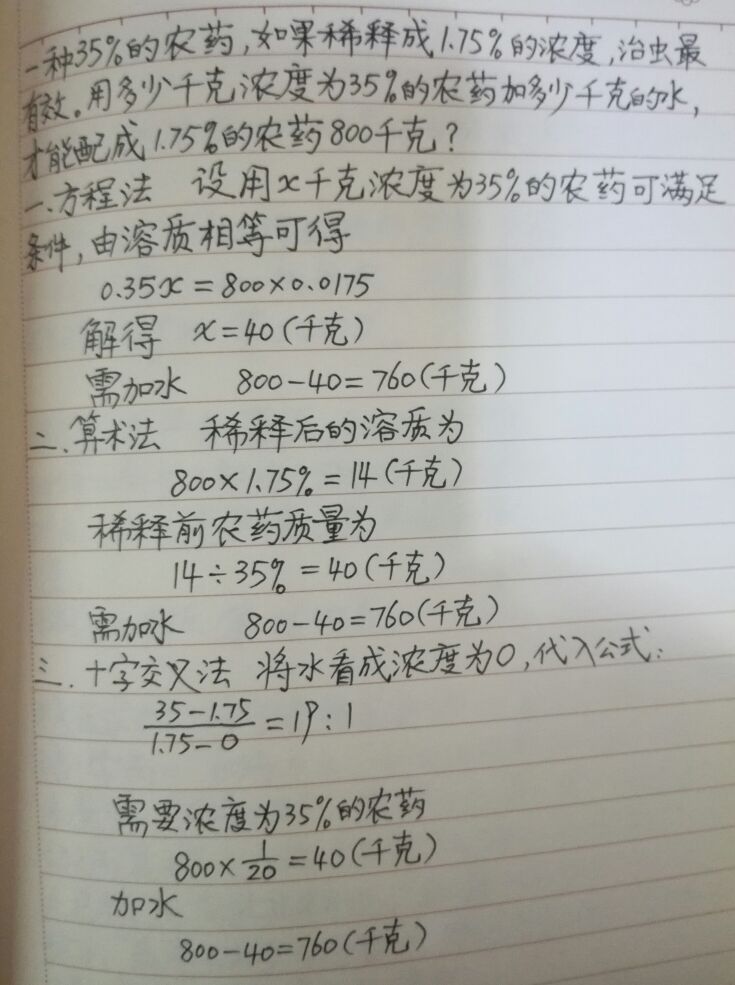 一种35%的农药,如果稀释成1.75%的浓度,治虫最
有效。用多少千克浓度为35%的农药加多少千克的水,
才能配成1.75%的农药800千克?
一.方程法 设用x千克浓度为35%的农药可满足
条件,由溶质相等可得
0.35x=800×0.0175
解得 x=40(千克)
需加水 800-40=760(千克)
二.算术法 稀释后的溶质为
800×1.75%=14(千克)
稀释前农药质量为
14÷35%=40(千克)
需加水 800-40=760(千克)
三.十字交叉法 将水看成浓度为0,代入公式:
(35-1.75)/(1.75-0)=19:1
需要浓度为35%的农药
800×1/20=40(千克)
加水
800-40=760(千克)